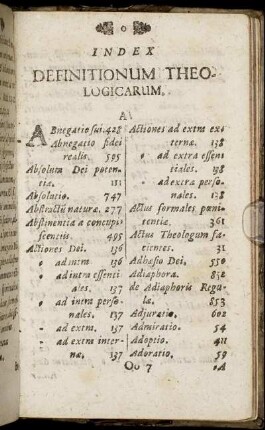 INDEX
DEFINITIONUM THEO-
LOGICARUM.
A
ABnegatio sui. 428
Abnegatio fidei
realis. 595
Absoluta Dei poten-
tia. 111
Absolutio. 747
Abstractū naturæ. 277
Abstinentia a concupi-
scentiis. 495
Actiones Dei. 136
- ad intra. 136
- ad intra essenti-
ales. 137
- ad intra perso-
nales. 137
- ad extra. 137
- ad extra inter-
næ. 137
Actiones ad extra ex-
ternæ. 138
- ad extra essen-
tiales. 138
- ad extra perso-
nales. 138
Actus formales pœni-
tentiæ. 361
Actus Theologum fa-
cientes. 31
Adhæsio Dei. 550
Adiaphora. 852
de Adiaphoris Regu-
læ. 853
Adjuratio. 602
Admiratio. 54
Adoptio. 411
Adoratio. 59
Oo 7
A